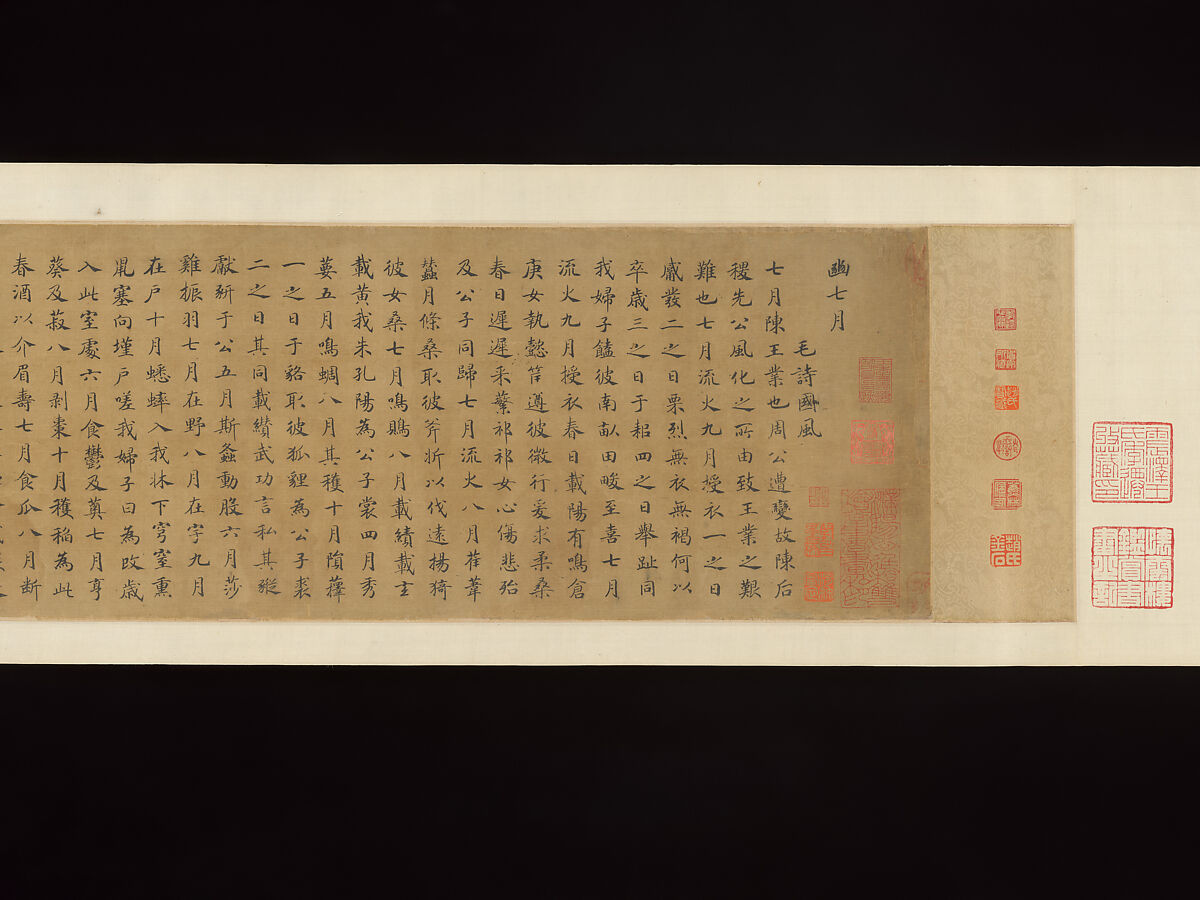 豳七月
毛詩國風
七月陳王業也周公遭變故陳后
稷先公風化之所由致王業之艱
難也七月流火九月授衣一之日
觱發二之日栗烈無衣無褐何以
卒歲三之日于耜四之日舉趾同
我婦子饁彼南畝田畯至喜七月
流火九月授衣春日載陽有鳴倉
庚女執懿筐遵彼微行爰求柔桑
春日遲遲采蘩祁祁女心傷悲殆
及公子同歸七月流火八月萑葦
蠶月條桑取彼斧斨以伐遠揚猗
彼女桑七月鳴鵙八月載績載玄
載黃我朱孔陽為公子裳四月秀
葽五月鳴蜩八月其穫十月隕蘀
一之日于貉取彼狐貍為公子裘
二之日其同載纘武功言私其豵
獻豜于公五月斯螽動股六月莎
雞振羽七月在野八月在宇九月
在戶十月蟋蟀入我牀下穹窒熏
鼠塞向墐戶嗟我婦子曰為改歲
入此室處六月食鬱及薁七月亨
葵及菽八月剥棗十月穫稻為此
春酒以介眉壽七月食瓜八月断